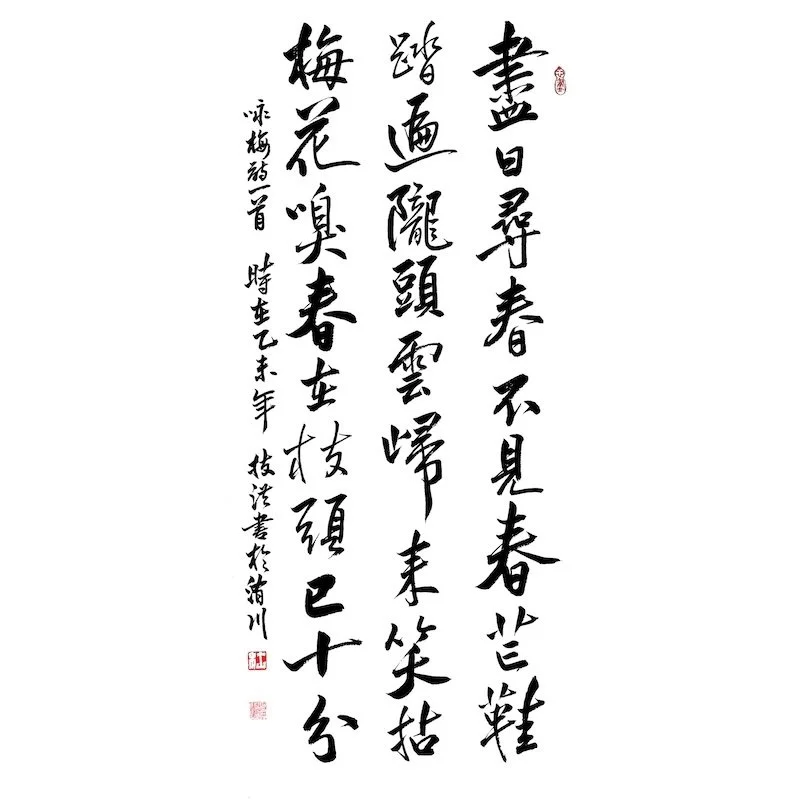 盡日尋春不見春芒鞋
踏遍隴頭雲歸来笑拈
梅花嗅春在枝頭已十分
咏梅詩一首 時在乙未年 技洪書於湇川